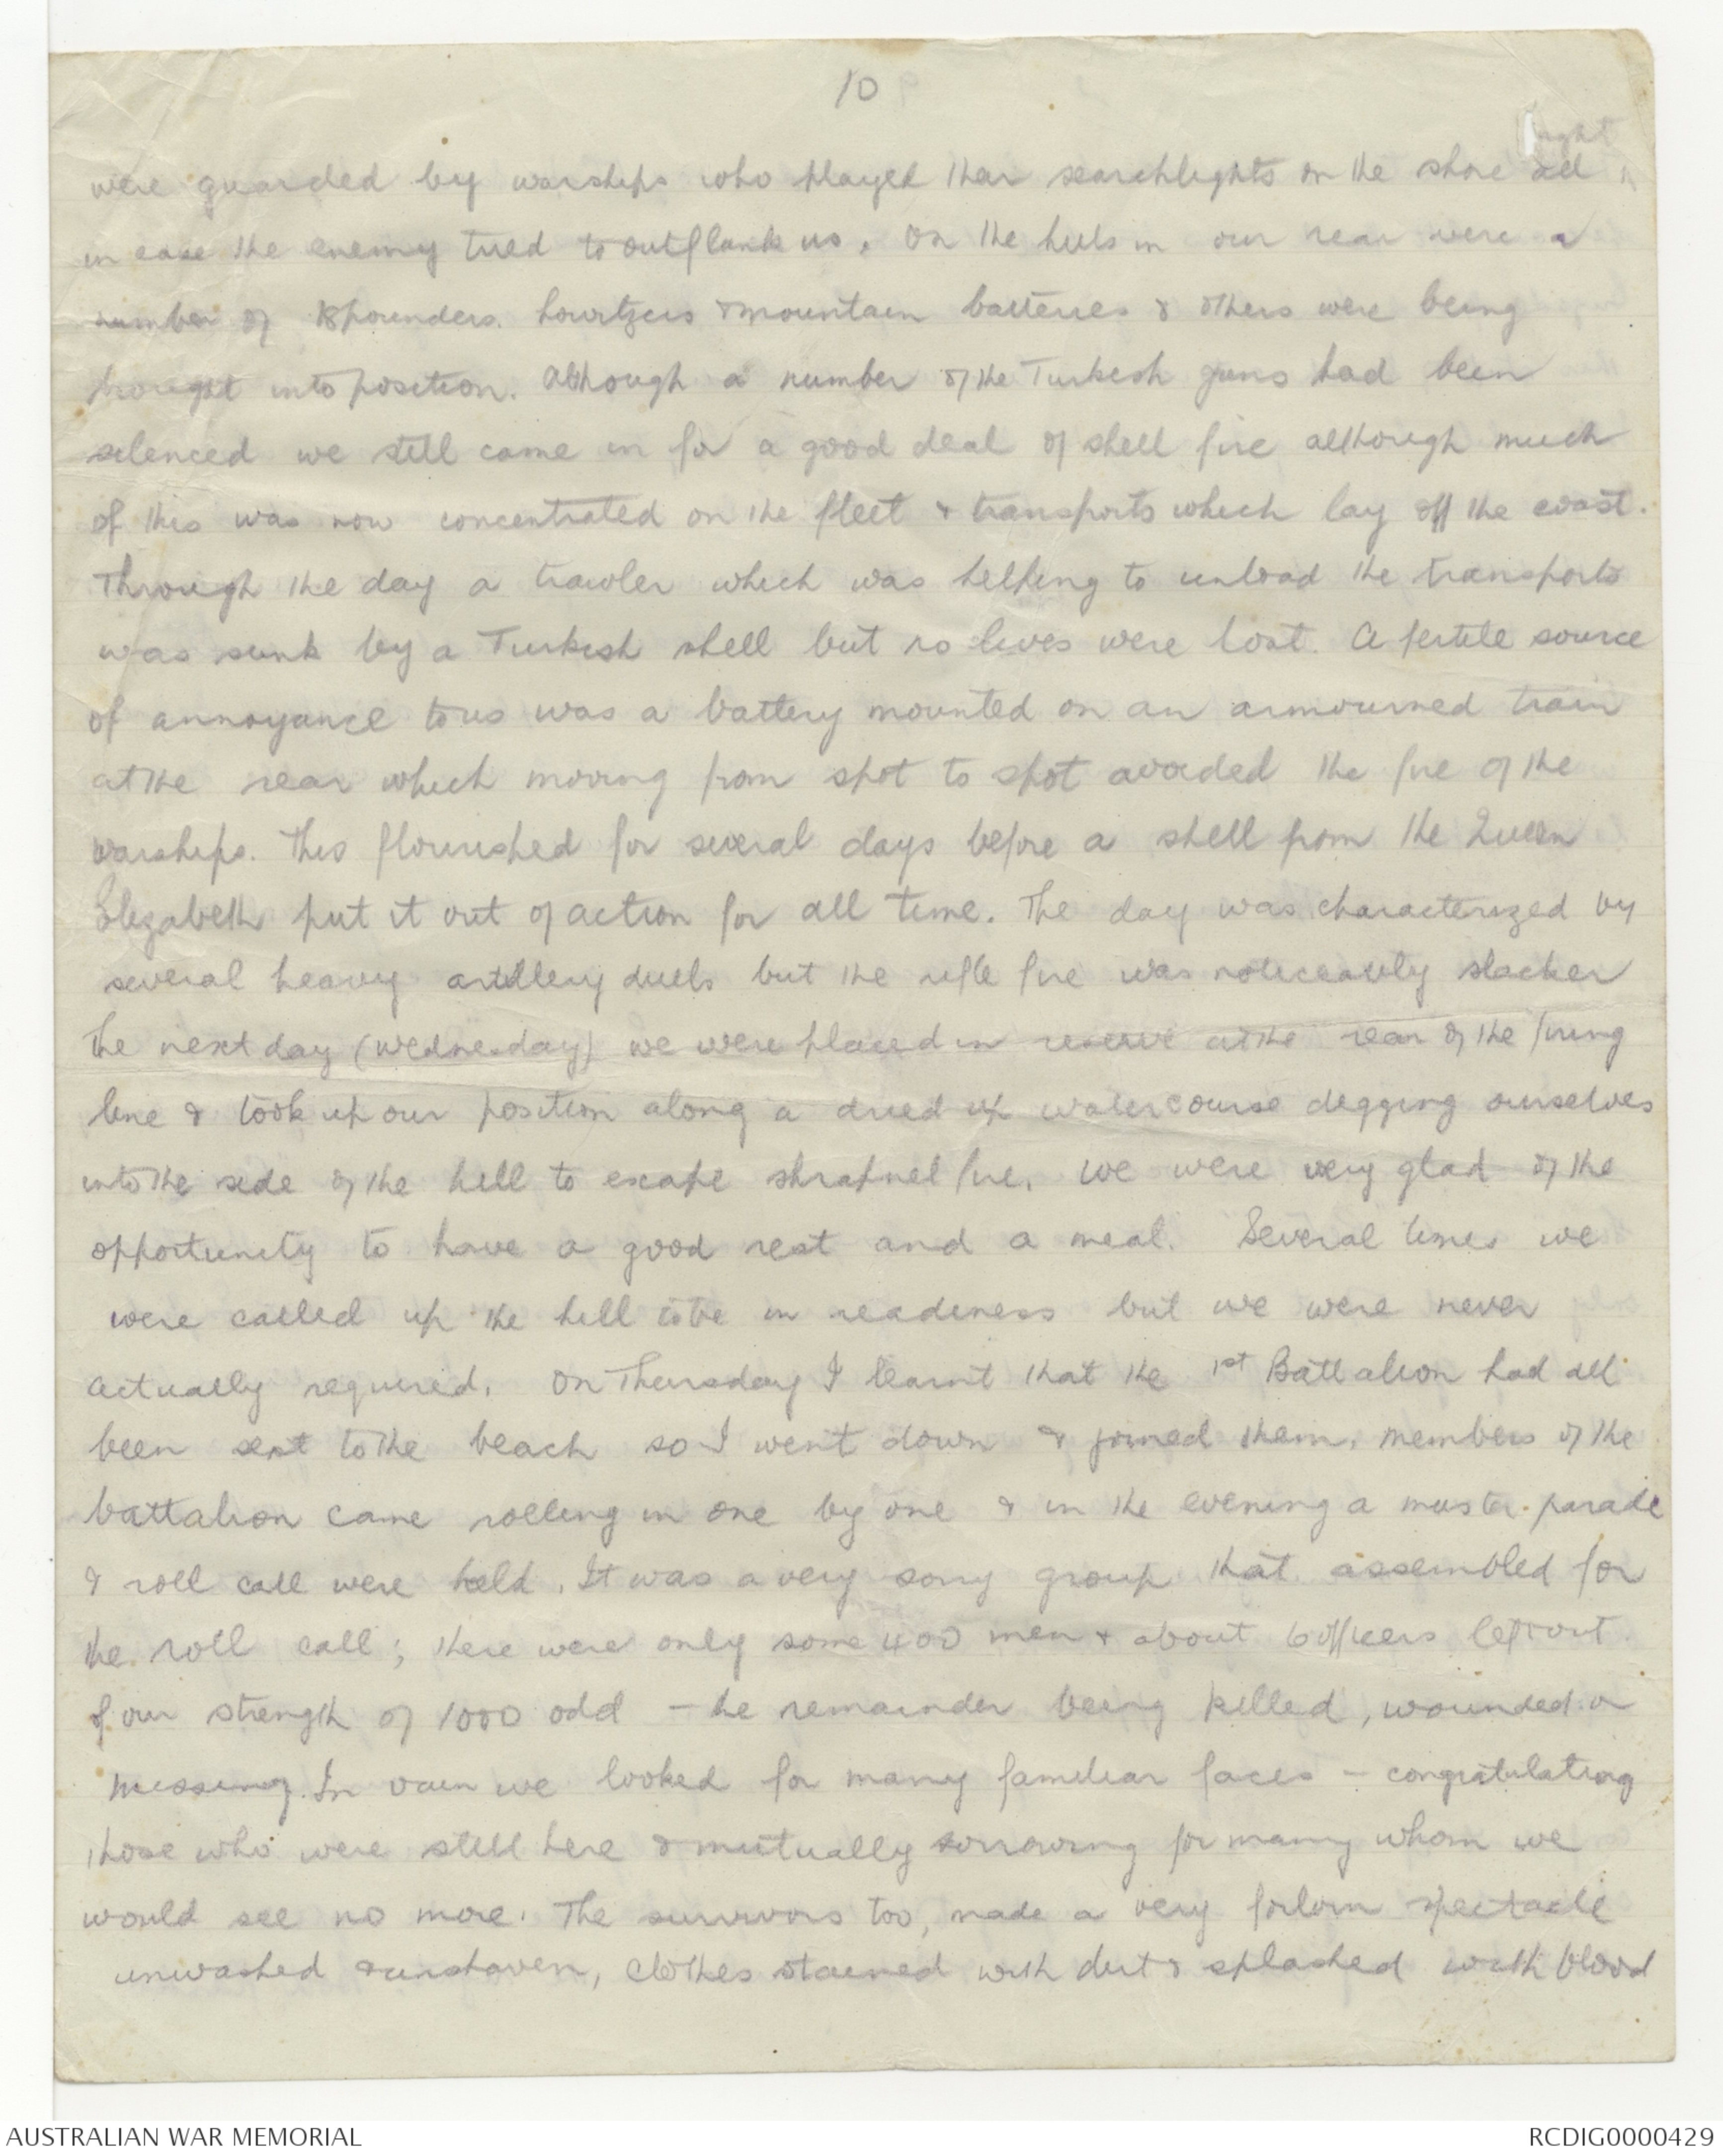 10
night
were guarded by warships who played their searchlights on the shore all
in case the enemy tried to outflank us. On the hills in our rear were a
number of 18pounders. howitzers & mountain batteries & others were being
brought into position. Although a number of the Turkish guns had been
silenced we still came in for a good deal of shell fire although much
of this was now concentrated on the fleet & transports which lay off the coast.
Through the day a trawler which was helping to unload the transports
was sunk by a Turkish shell but no lives were lost. A fertile source
of annoyance to us was a battery mounted on an armourned train
at the rear which moving from spot to spot avoided the fire of the
warships. This flourished for several days before a shell from the Queen
Elizabeth put it out of action for all time. The day was characterized by
several heavy artillery duels but the rifle fire was noticeably slacker
The next day (Wednesday) we were placed in reserve at the rear of the firing
line & took up our position along a dried up watercourse digging ourselves
into the side of the hill to escape shrapnel fire. We were very glad of the
opportunity to have a good rest and a meal. Several times we
were called up the hill to be in readiness but we were never
actually required. On Thursday I learnt that the 1st Battalion had all
been sent to the beach so I went down & joined them. Members of the
battalion came rolling in one by one & in the evening a muster parade
& roll call were held. It was a very sorry group that assembled for
the roll call; there were only some 400 men & about 6 officers left out
of our strength of 1000 odd - he remainder being killed, wounded or
missing. In vain we looked for many familiar faces - congratulating
those who were still here & mutually sorrowing for many whom we
would see no more. The survivors too, made a very forlorn spectacle
unwashed & unshaven, clothes stained with dirt & splashed with blood
AUSTRALIAN WAR MEMORIAL
RCDIG0000429